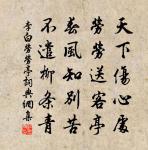 天下傷心處
勞勞送客亭
春風知別苦
不遣柳條青
李白勞勞亭詞典網集